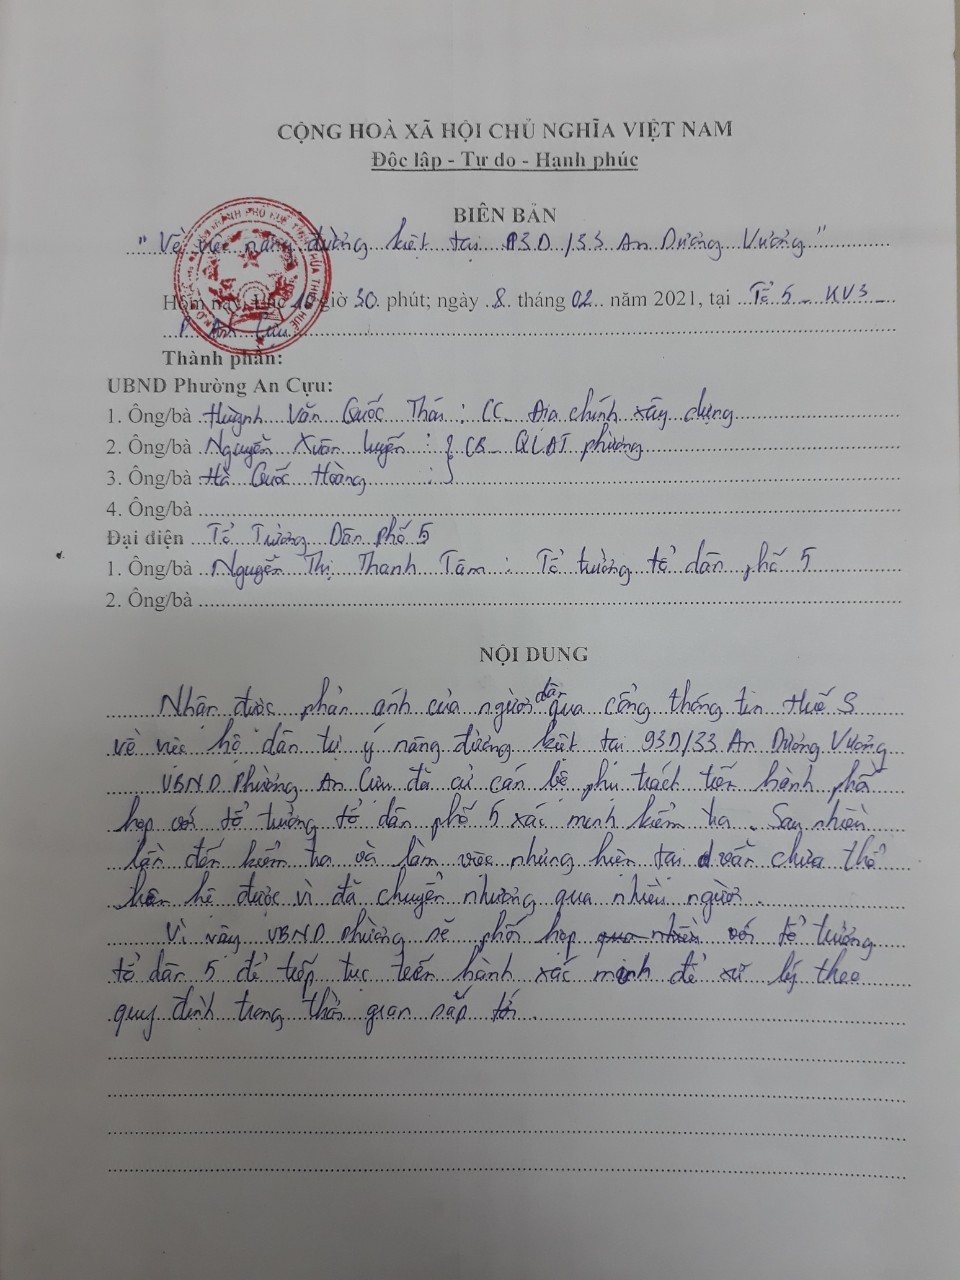 CỘNG HOÀ XÃ HỘI CHỦ NGHĨA VIỆT NAM
Độc lập - Tự do - Hạnh phúc
BIÊN BẢN
"Về việc nâng đường kiệt tại 93D/33 An Dương Vương"
Hôm nay, lúc 16 giờ 30 phút; ngày 8 tháng 02 năm 2021, tại Tổ 5 - KV3 -
P An Cựu
Thành phần:
UBND Phường An Cựu:
1. Ông/bà Huỳnh Văn Quốc Thái : CC Địa chính xây dựng
2. Ông/bà Nguyễn Xuân Luyến : } CB QLĐT phường
3. Ông/bà Hà Quốc Hoàng : }
4. Ông/bà
Đại diện Tổ Trưởng Dân phố 5
1. Ông/bà Nguyễn Thị Thanh Tâm : Tổ trưởng tổ dân phố 5
2. Ông/bà
NỘI DUNG
Nhận được phản ánh của người dân qua cổng thông tin Huế S
về việc hộ dân tự ý nâng đường kiệt tại 93D/33 An Dương Vương
UBND Phường An Cựu đã cử cán bộ phụ trách tiến hành phối
hợp với tổ trưởng tổ dân phố 5 xác minh kiểm tra. Sau nhiều
lần đến kiểm tra và làm việc nhưng hiện tại vẫn chưa thể
liên hệ được vì đã chuyển nhượng qua nhiều người.
Vì vậy UBND Phường sẽ phối hợp qua nhiều với tổ trưởng
tổ dân 5 để tiếp tục tiến hành xác minh để xử lý theo
quy định trong thời gian sắp tới.